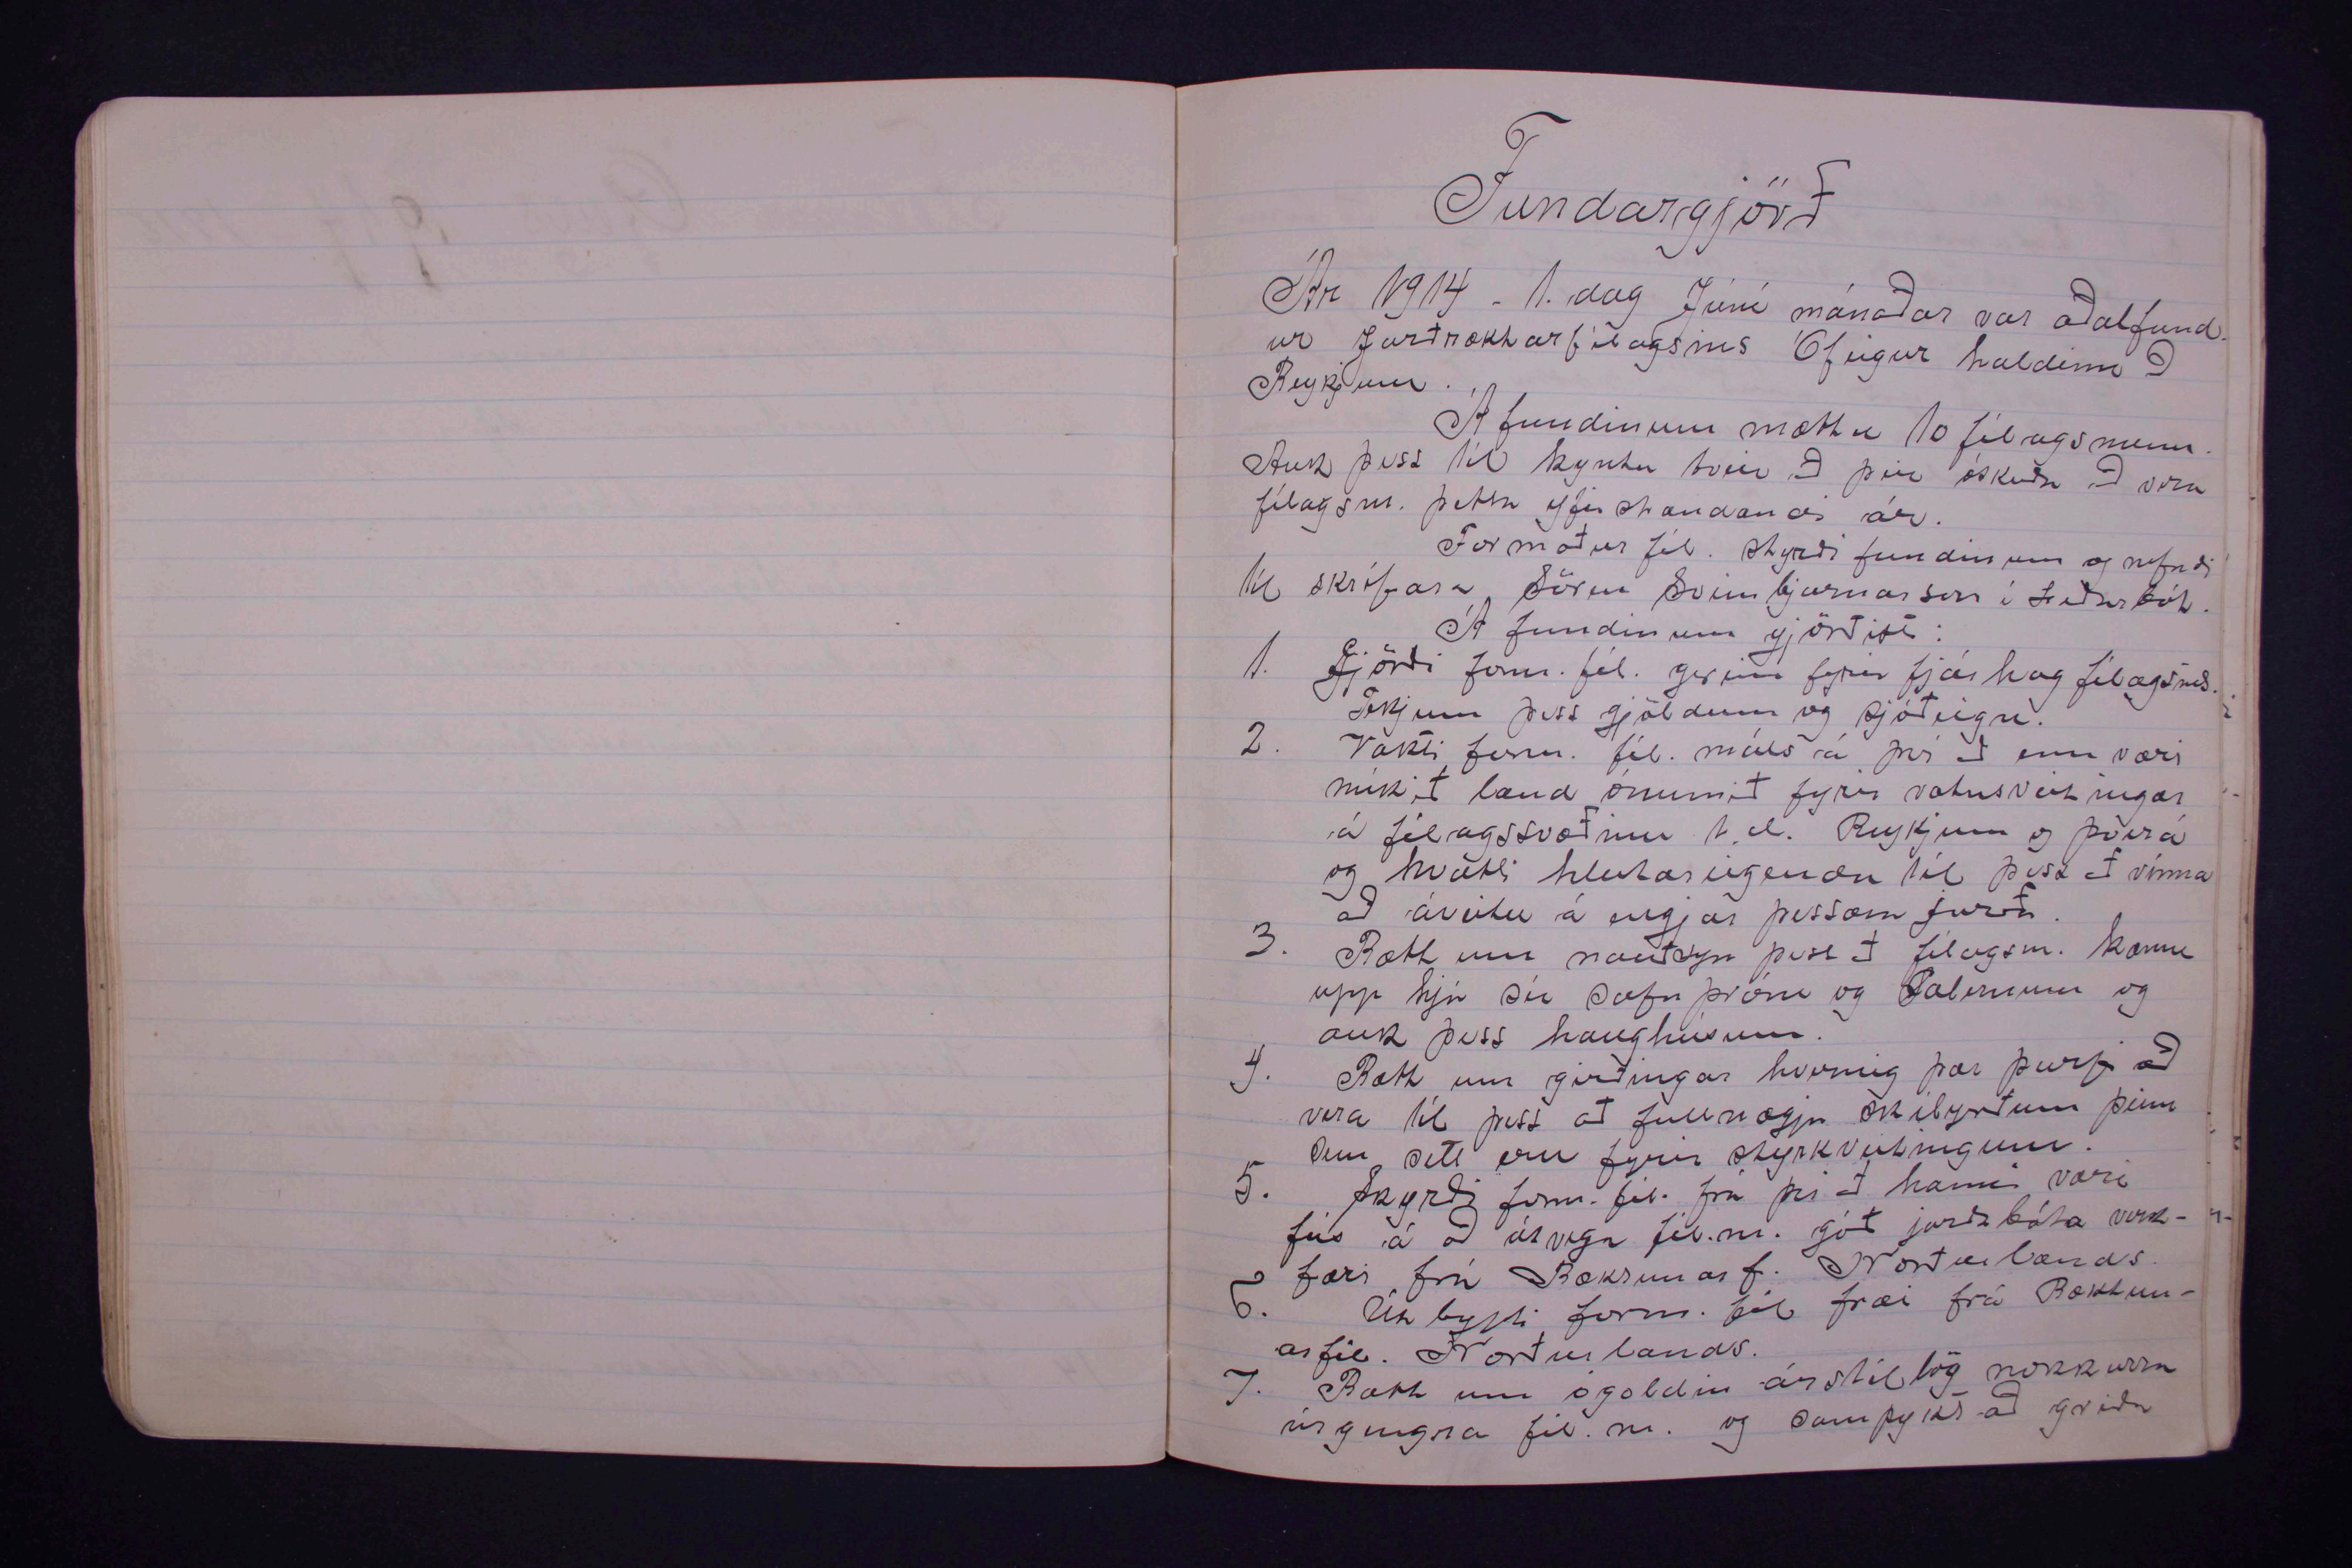 Fundargjörð
Ár 1914 - 1. dag Júní mánaðar var aðalfund-
ur Jarðræktarfélagsins Ófeigur haldinn að
Reykjum.
Á fundinum mættu 10 félagsmenn.
Auk þess til kyntu tveir að þeir óskuðu að vera
félagsm. þetta yfirstandandi ár.
Formaður fél. styrði fundinum og nefndi
til skrifara Sören Sveinbjarnarson í
Á fundinum gjörðist:
1. Gjörði form. fél. grein fyrir fjárhag félagsins.
Tekjum þess gjöldum og sjóðeign.
2. Vakti form. fél. máls á því að enn væri
mikið land ónumið fyrir vatnsveitingar
á félagssvæðinu t.d. Reykjum og Þverá
og hvatti hlutareigendur til þess að vinna
að áveitu á engjar þessara jarða.
3. Rætt um nauðsyn þess að félagsm. kæmu
upp hjá sér safnþróm og Salernum og
auk þess haughúsum.
4. Rætt um girðingar hvernig þær þurfi að
vera til þess að fullnægja skilyrðum þeim
sem sett eru fyrir styrkveitingum.
5. Skyrði form. fél. frá því að hann væri
fús á að útvega fél.m. góð jarðabóta verk-
færi frá Ræktunarf. Norðurlands.
6. Út bytti form. fél fræi frá Ræktun-
arfél. Norðurlands.
7. Rætt um ógoldin árstillög nokkurra
úrgengna fél.m. og samþykt að greiða